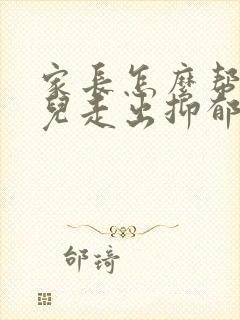 家長怎麼幫
兒走出抑郁
邰琦